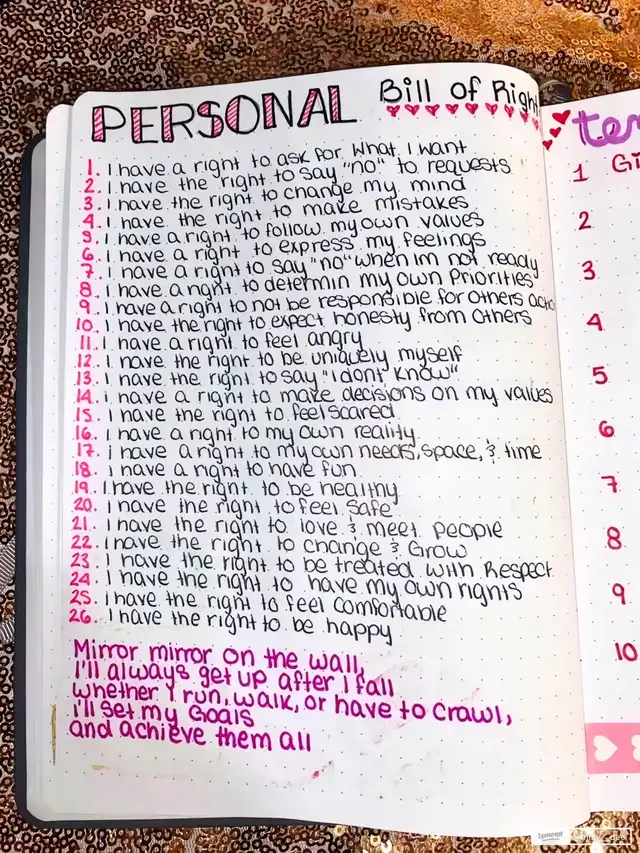 PERSONAL Bill of Right
1. I have a right to ask for what I want
2. I have the right to say "no" to requests
3. I have the right to change my mind
4. I have the right to make mistakes
5. I have a right to follow my own values
6. I have a right to express my feelings
7. I have a right to say "no" when im not ready
8. I have a right to determin my own Priorities
9. I have a right to not be responsible for others actio
10. I have the right to expect honesty from others
11. I have a right to feel angry
12. I have the right to be uniquely myself
13. I have the right to say "I dont know"
14. I have a right to make decisions on my values
15. I have the right to feel scared
16. I have a right to my own reality
17. i have a right to my own needs, space, & time
18. I have a right to have fun
19. I have the right to be healthy
20. I have the right to feel safe
21. I have the right to love & meet people
22. I have the right to change & Grow
23. I have the right to be treated with Respect
24. I have the right to have my own rights
25. I have the right to feel comfortable
26. I have the right to be happy
Mirror mirror on the wall,
I'll always get up after I fall
whether I run, walk, or have to crawl,
i'll set my Goals
and achieve them all
ten
1 Gi
2
3
4
5
6
7
8
9
10